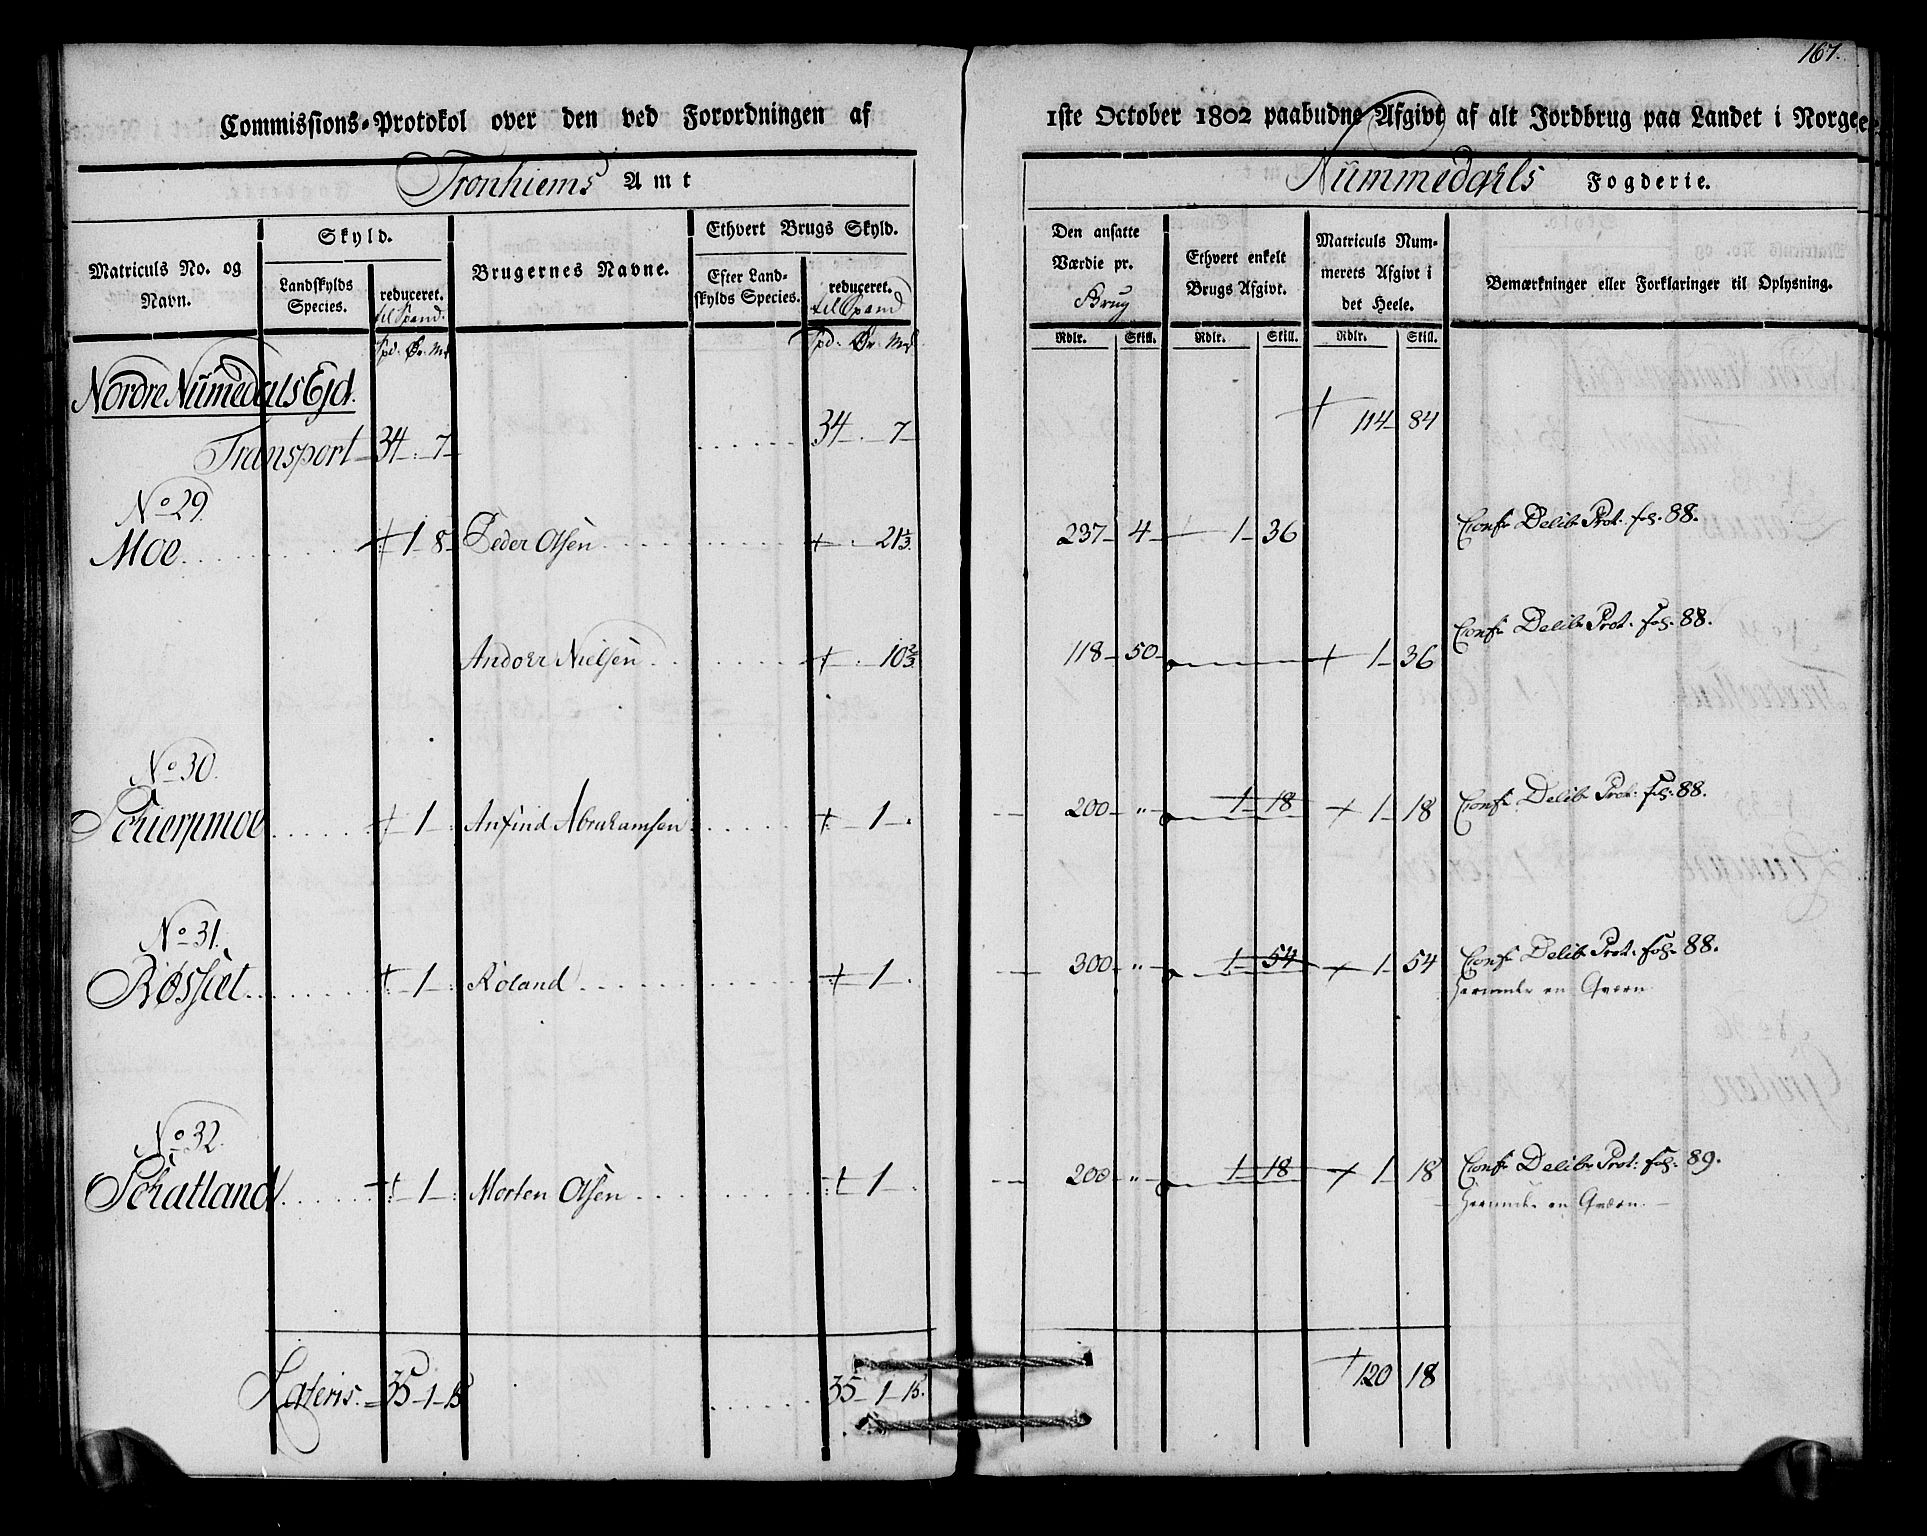 167.
Commissions-Protokol over den ved Forordningen af 1ste October 1802 paabudne Afgivt af alt Jordbrug paa Landet i Norge
Tronhiems Amt
Nummedahls Fogderie.
Matriculs No. og Navn.
Skyld.
Landskylds Species.
reduceret.
til Spand.
Brugernes Navne.
Ethvert Brugs Skyld.
Efter Landskylds Species.
reduceret.
til Spand
Den ansatte Værdie pr. Brug
Ethvert enkelt Brugs Afgivt.
Matriculs Nummerets Afgivt i det Heele.
Bemærkninger eller Forklaringer til Oplysning.
Spd. Ør. Mk
Spd. Ør. Mk
Rdlr. Skill. Rdlr. Skill. Rdlr. Skill.
Nordre Numedals Ejd.
Transport 34 . 7 34 . 7 114 84
No 29.
Moe 1 8 Peder Olsen 21⅓ 237 4 1 36 Conf. Delib. Prot. fol. 88.
Andor Nielsen 10⅔ 118 50 1 36 Conf. Delib. Prot. fol. 88.
No 30.
Schierpmoe 1 Anfind Abrahamsen 1 200 " 1 18 1 18 Conf. Delib. Prot. fol. 88.
No 31.
Røsset 1 Roland 1 300 " 1 54 1 54 Conf. Delib. Prot. fol. 88.
Herunder en Qværn
No 32.
Schatland 1 Morten Olsen 1 200 " 1 18 1 18 Conf. Delib. Prot. fol. 89.
Herunder en Qværn.
Lateris 35 1 15 35 1 15. 120 18